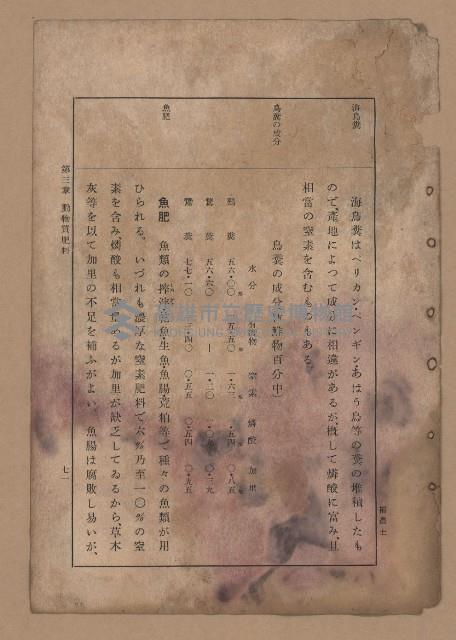 海鳥糞
海鳥糞はペリカン、ペンギン、あはう鳥等の糞の堆積したも
ので、産地によつて成分に相違があるが、概して燐酸に富み、且
相當の窒素を含むものもある。
鳥糞の成分
鳥糞の成分(新鮮物百分中)
水分 有機物 窒素 燐酸 加里
鷄糞 五六・〇〇 一・六三 〇・八五
糞 五六・六〇 —
糞 七七・一〇 〇・五五 〇・五四 〇・九五
魚肥
魚肥 魚類の搾滓、乾魚、生魚、魚腸、荒粕等、種々の魚類が用
ひられる。いづれも濃厚な窒素肥料で、六%乃至一〇%の窒
素を含み燐酸も相當にあるが加里が缺乏してゐるから、草木
灰等を以て加里の不足を補ふがよい。魚腸は腐敗し易いが、
第三章 動物質肥料
七一
高雄市立歷史博物館
KAOHSIUNG MUSEUM OF HISTORY